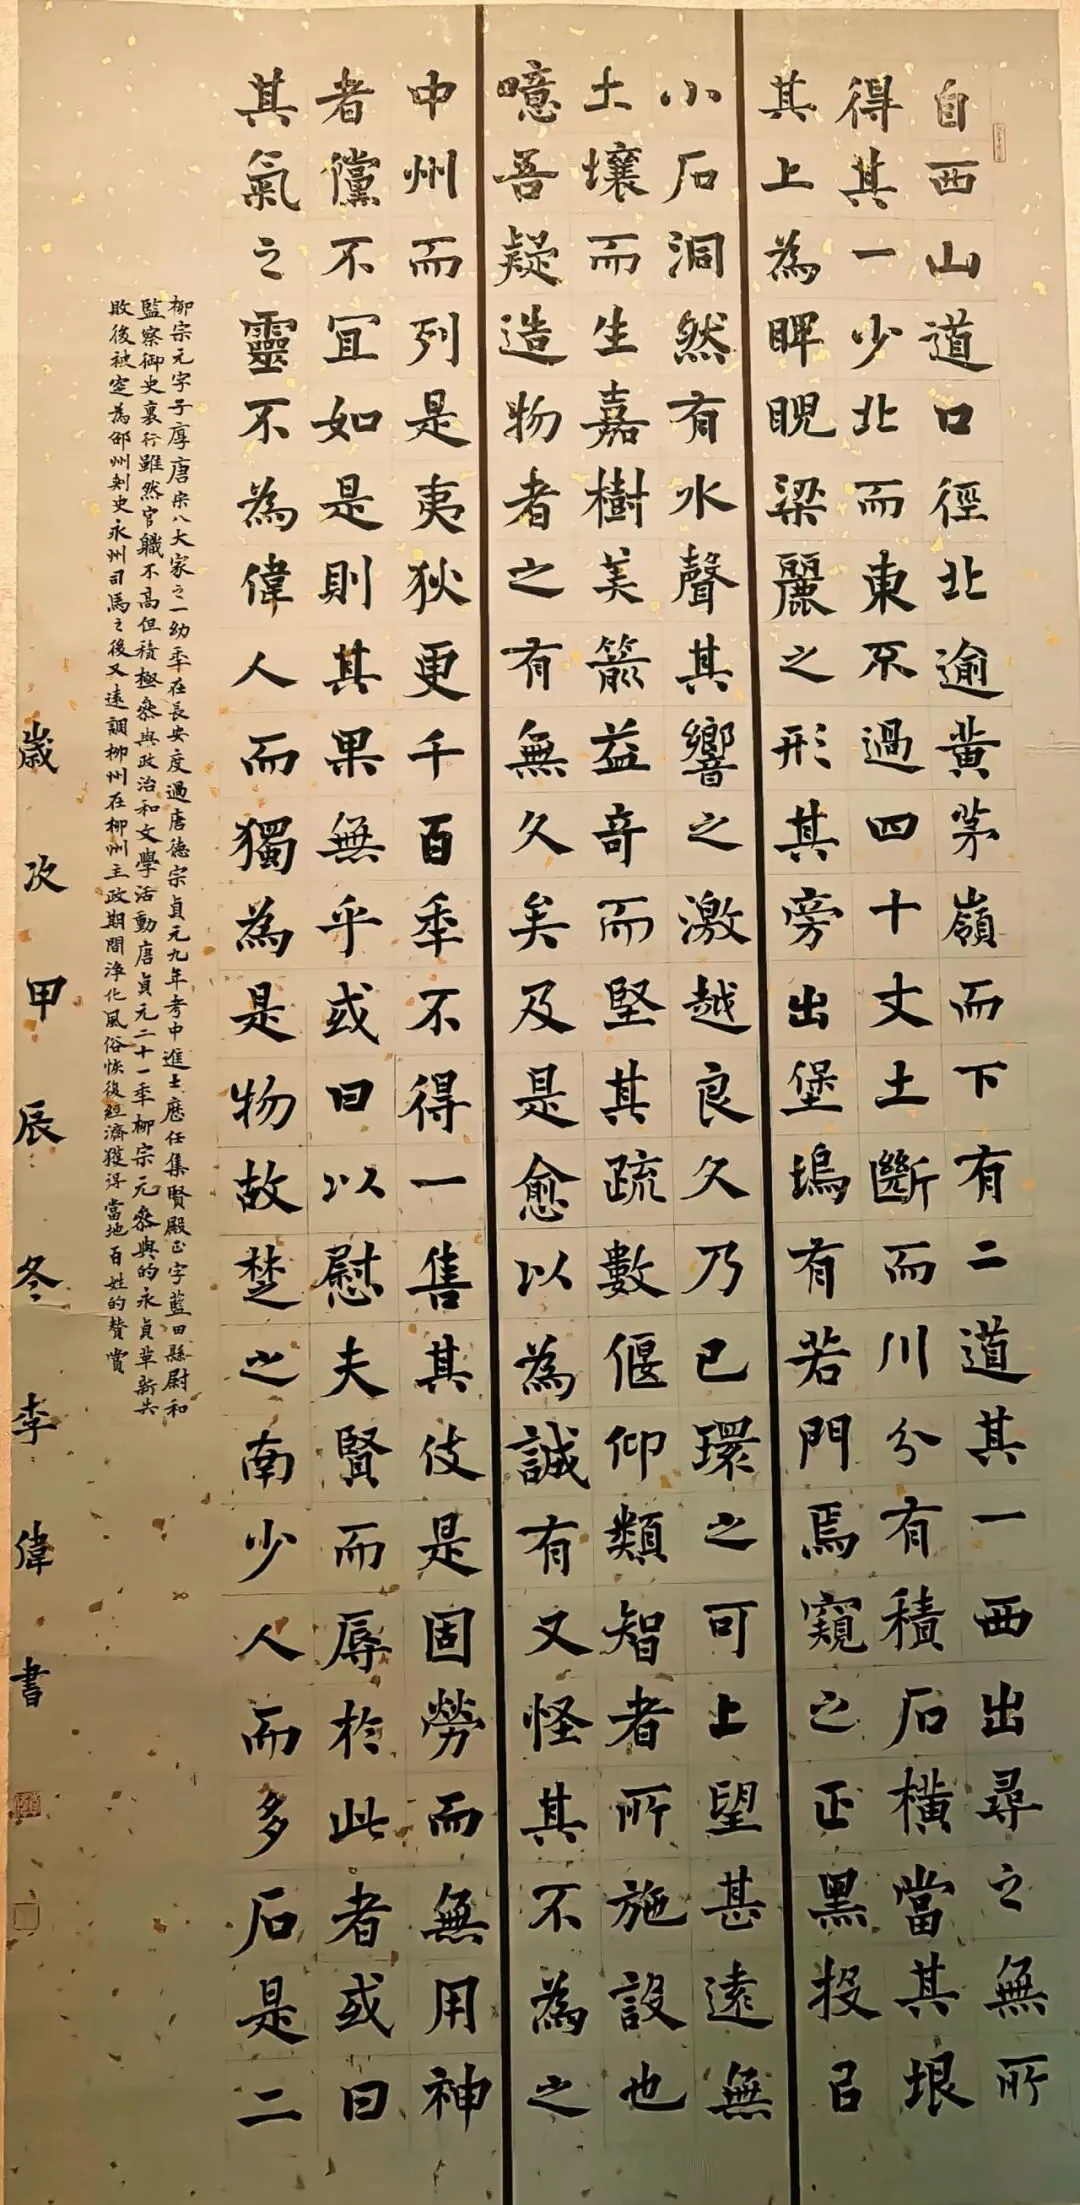 自西山道口徑北逾黄茅嶺而下有二道其一西出尋之無所
得其一少北而東不過四十丈土斷而川分有積石橫當其垠
其上為睥睨梁麗之形其旁出堡塢有若門焉窺之正黑投㠯
小石洞然有水聲其響之激越良久乃已環之可上望甚遠無
土壤而生嘉樹美箭益奇而堅其疏數偃仰類智者所施設也
噫吾疑造物者之有無久矣及是愈以為誠有又怪其不為之
中州而列是夷狄更千百秊不得一售其伎是固勞而無用神
者儻不宜如是則其果無乎或曰以慰夫賢而辱於此者或曰
其氣之靈不為偉人而獨為是物故楚之南少人而多石是二
柳宗元字子厚唐宋八大家之一幼秊在長安度過唐德宗貞元九年考中進士歷任集賢殿正字藍田縣尉和
監察御史裏行雖然官職不高但積極參與政治和文學活動唐貞元二十一秊柳宗元參與的永貞革新失
敗後被定為邵州刺史永州司馬之後又遠調柳州在柳州主政期間淨化風俗恢復經濟獲得當地百姓的贊賞
歲次甲辰冬李偉書